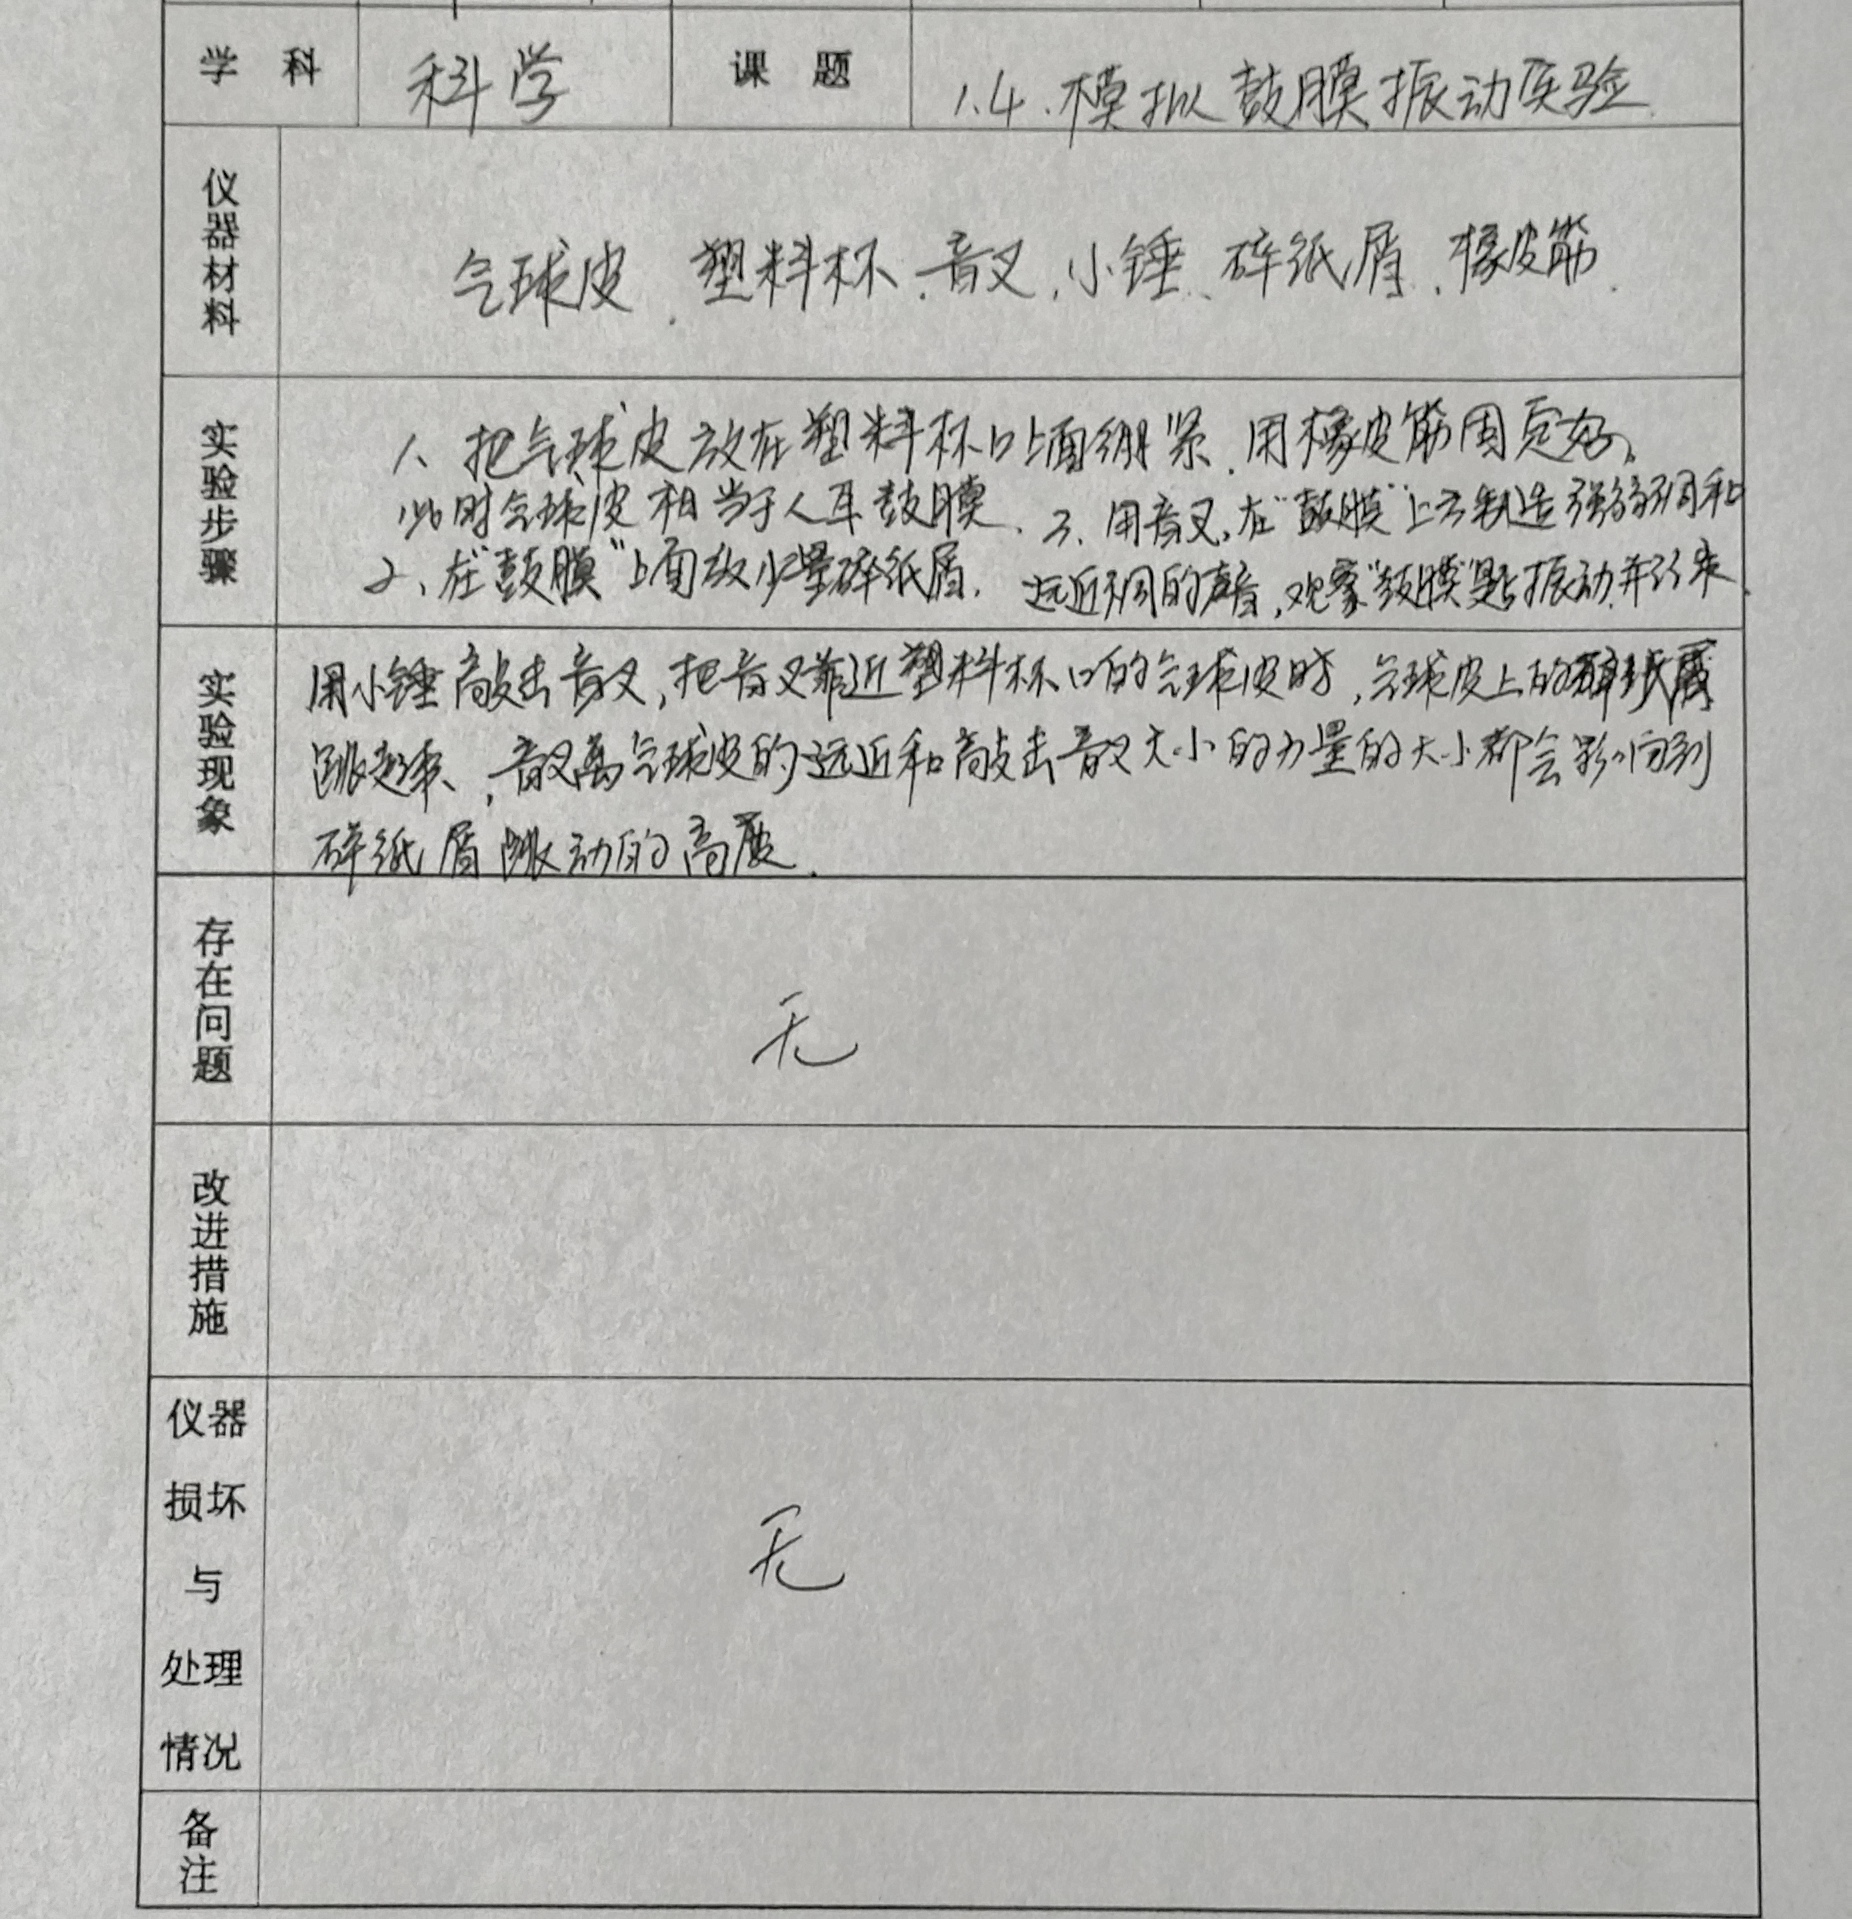 学 科 科学 课 题 1.4.模拟鼓膜振动实验
仪器材料 气球皮、塑料杯、音叉、小锤、碎纸屑、橡皮筋.
实验步骤
1、把气球皮放在塑料杯口上面绷紧、用橡皮筋固定好、
此时气球皮相当于人耳鼓膜.
2、在“鼓膜”上面放少量碎纸屑.
3、用音叉,在“鼓膜”上方制造强弱不同和
远近不同的声音,观察“鼓膜”是否振动.并记录.
实验现象
用小锤敲击音叉,把音叉靠近塑料杯口的气球皮时,气球皮上的碎纸屑
跳起来、,音叉离气球皮的远近和敲击音叉大小的力量的大小都会影响到
碎纸屑跳动的高度.
存在问题 无
改进措施
仪器损坏与处理情况 无
备注